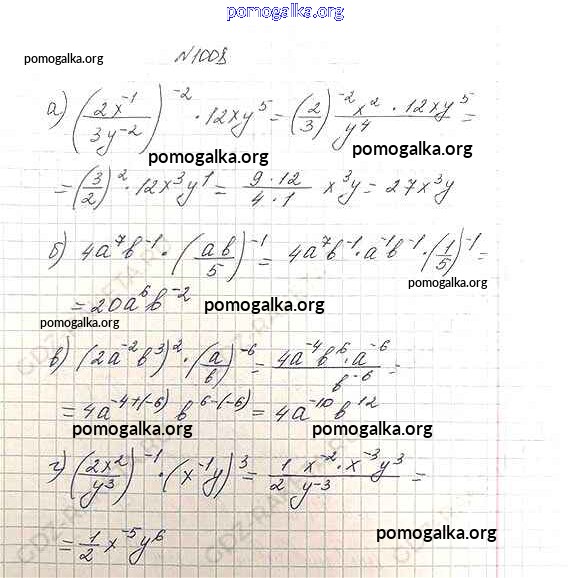 pomogalka.org
pomogalka.org
№1008
а) (2x⁻¹/3y⁻²)⁻² · 12xy⁵ = (2/3)⁻² x² · 12xy⁵/y⁴ =
pomogalka.org pomogalka.org
= (3/2)² · 12x³y¹ = 9·12/4·1 x³y = 27x³y
б) 4a⁷b⁻¹ · (ab/5)⁻¹ = 4a⁷b⁻¹ · a⁻¹b⁻¹ · (1/5)⁻¹ =
= 20a⁶b⁻² pomogalka.org
pomogalka.org
в) (2a⁻²b³)² · (a/b)⁻⁶ = 4a⁻⁴b⁶ · a⁻⁶/b⁻⁶ =
= 4a⁻⁴⁺⁽⁻⁶⁾ b⁶⁻⁽⁻⁶⁾ = 4a⁻¹⁰b¹²
pomogalka.org pomogalka.org
г) (2x²/y³)⁻¹ · (x⁻¹y)³ = 1/2 x⁻² · x⁻³y³/y⁻³ =
pomogalka.org
= 1/2 x⁻⁵y⁶